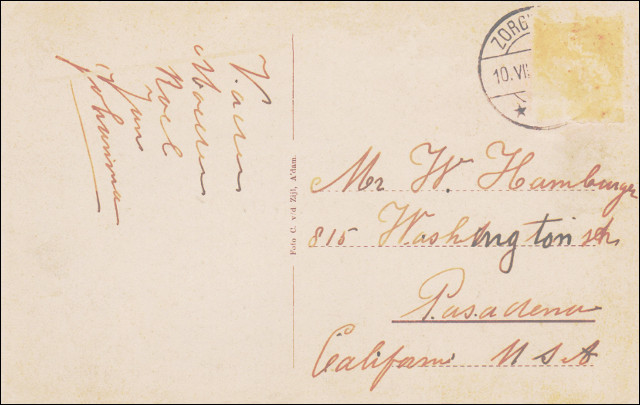 Vader
Moeder
Roel
Jan
Johanna
Foto C. v/d Zijl, A'dam.
ZORG
10.VII
Mr W. Hamburger
815 Washington str
Pasadena
Californi U S A